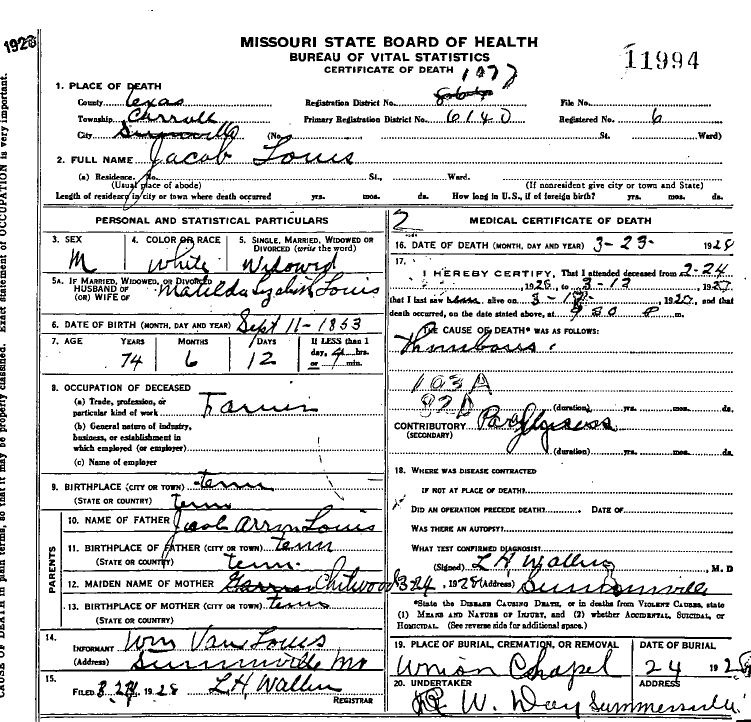 1928
MISSOURI STATE BOARD OF HEALTH
BUREAU OF VITAL STATISTICS
CERTIFICATE OF DEATH
11994
1. PLACE OF DEATH
County Texas Registration District No. File No.
Township Carroll Primary Registration District No. 6140 Registered No. 6
City (No. St. Ward)
2. FULL NAME Jacob Louis
(a) Residence. No. St., Ward.
(Usual place of abode) (If nonresident give city or town and State)
Length of residence in city or town where death occurred yrs. mos. ds. How long in U.S., if of foreign birth? yrs. mos. ds.
PERSONAL AND STATISTICAL PARTICULARS
3. SEX
M
4. COLOR OR RACE
White
5. SINGLE, MARRIED, WIDOWED OR DIVORCED (write the word)
Widowed
5A. IF MARRIED, WIDOWED, OR DIVORCED
HUSBAND OF
(OR) WIFE OF Matilda Louis
6. DATE OF BIRTH (MONTH, DAY AND YEAR) Sept 11-1853
7. AGE YEARS MONTHS DAYS If LESS than 1 day, hrs. or min.
74 6 12
8. OCCUPATION OF DECEASED
(a) Trade, profession, or particular kind of work Farmer
(b) General nature of industry, business, or establishment in which employed (or employer)
(c) Name of employer
9. BIRTHPLACE (CITY OR TOWN) tenn
(STATE OR COUNTRY) tenn
PARENTS
10. NAME OF FATHER Jacob Louis
11. BIRTHPLACE OF FATHER (CITY OR TOWN) tenn
(STATE OR COUNTRY) tenn.
12. MAIDEN NAME OF MOTHER Chitwood
13. BIRTHPLACE OF MOTHER (CITY OR TOWN) tenn
(STATE OR COUNTRY)
14.
INFORMANT Wm Van Louis
(Address) Summerville Mo
15.
FILED 3 24, 1928 L.H. Wallen
REGISTRAR
2 MEDICAL CERTIFICATE OF DEATH
16. DATE OF DEATH (MONTH, DAY AND YEAR) 3-23- 1928
17.
I HEREBY CERTIFY, That I attended deceased from 2-24
, 1928, to 3-12, 192
that I last saw alive on 3-1, 192, and that
death occurred, on the date stated above, at 930 P m.
THE CAUSE OF DEATH* WAS AS FOLLOWS:
103A
82D
(duration) yrs. mos. ds.
CONTRIBUTORY
(SECONDARY)
(duration) yrs. mos. ds.
18. WHERE WAS DISEASE CONTRACTED
IF NOT AT PLACE OF DEATH?
DID AN OPERATION PRECEDE DEATH? DATE OF
WAS THERE AN AUTOPSY?
WHAT TEST CONFIRMED DIAGNOSIS?
(Signed) L H Wallen, M. D
3-24, 1928 (Address) Summersville
*State the DISEASE CAUSING DEATH, or in deaths from VIOLENT CAUSES, state
(1) MEANS AND NATURE OF INJURY, and (2) whether ACCIDENTAL, SUICIDAL, or
HOMICIDAL. (See reverse side for additional space.)
19. PLACE OF BURIAL, CREMATION, OR REMOVAL DATE OF BURIAL
Union Chapel 24 1928
20. UNDERTAKER ADDRESS
W. Day Summersville
CAUSE OF DEATH in plain terms, so that it may be properly classified. Exact statement of OCCUPATION is very important.